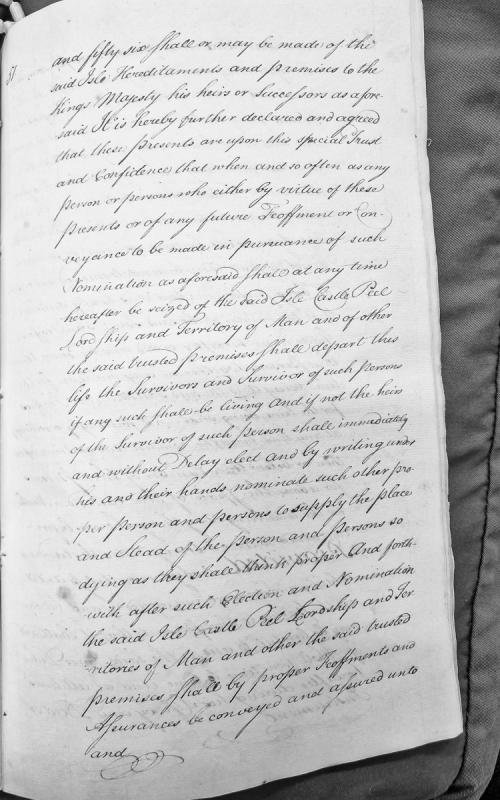 51
and fifty six shall or may be made of the
said Isle Hereditaments and premises to the
Kings Majesty his heirs or Successors as afore
said It is hereby further declared and agreed
that these presents are upon this special Trust
and Confidence that when and so often as any
person or persons who either by virtue of these
presents or of any future Feoffment or Con-
veyance to be made in pursuance of such
Nomination as aforesaid shall at any time
hereafter be seized of the said Isle Castle Peel
Lordship and Territory of Man and of other
the said trusted premises shall depart this
life the Survivors and Survivor of such persons
if any such shall be living and if not the heirs
of the Survivor of such person shall immediately
and without Delay elect and by writing under
his and their hands nominate such other pro-
per person and persons to supply the place
and Stead of the person and persons so
dying as they shall think proper And forth-
with after such Election and Nomination
the said Isle Castle Peel Lordship and Ter
ritories of Man and other the said trusted
premises shall by proper Feoffments and
Assurances be conveyed and assured unto
and